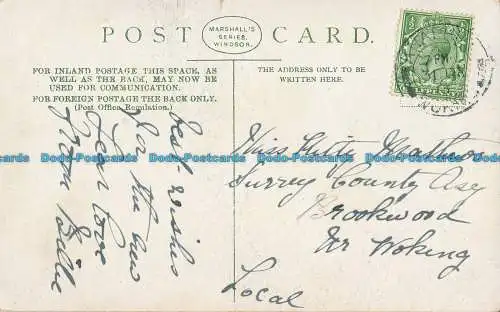 POST CARD.
MARSHALL'S
SERIES.
WINDSOR.
FOR INLAND POSTAGE THIS SPACE, AS
WELL AS THE BACK, MAY NOW BE
USED FOR COMMUNICATION.
FOR FOREIGN POSTAGE THE BACK ONLY.
(Post Office Regulation.)
THE ADDRESS ONLY TO BE
WRITTEN HERE.
Best wishes
for the new
Year love
from Billie
Miss Kitty
Surrey County Asy
Brookwood
Nr Woking
Local
Dodo-Postcards Dodo-Postcards Dodo-Postcards Dodo-Postcards Dodo-Postcards